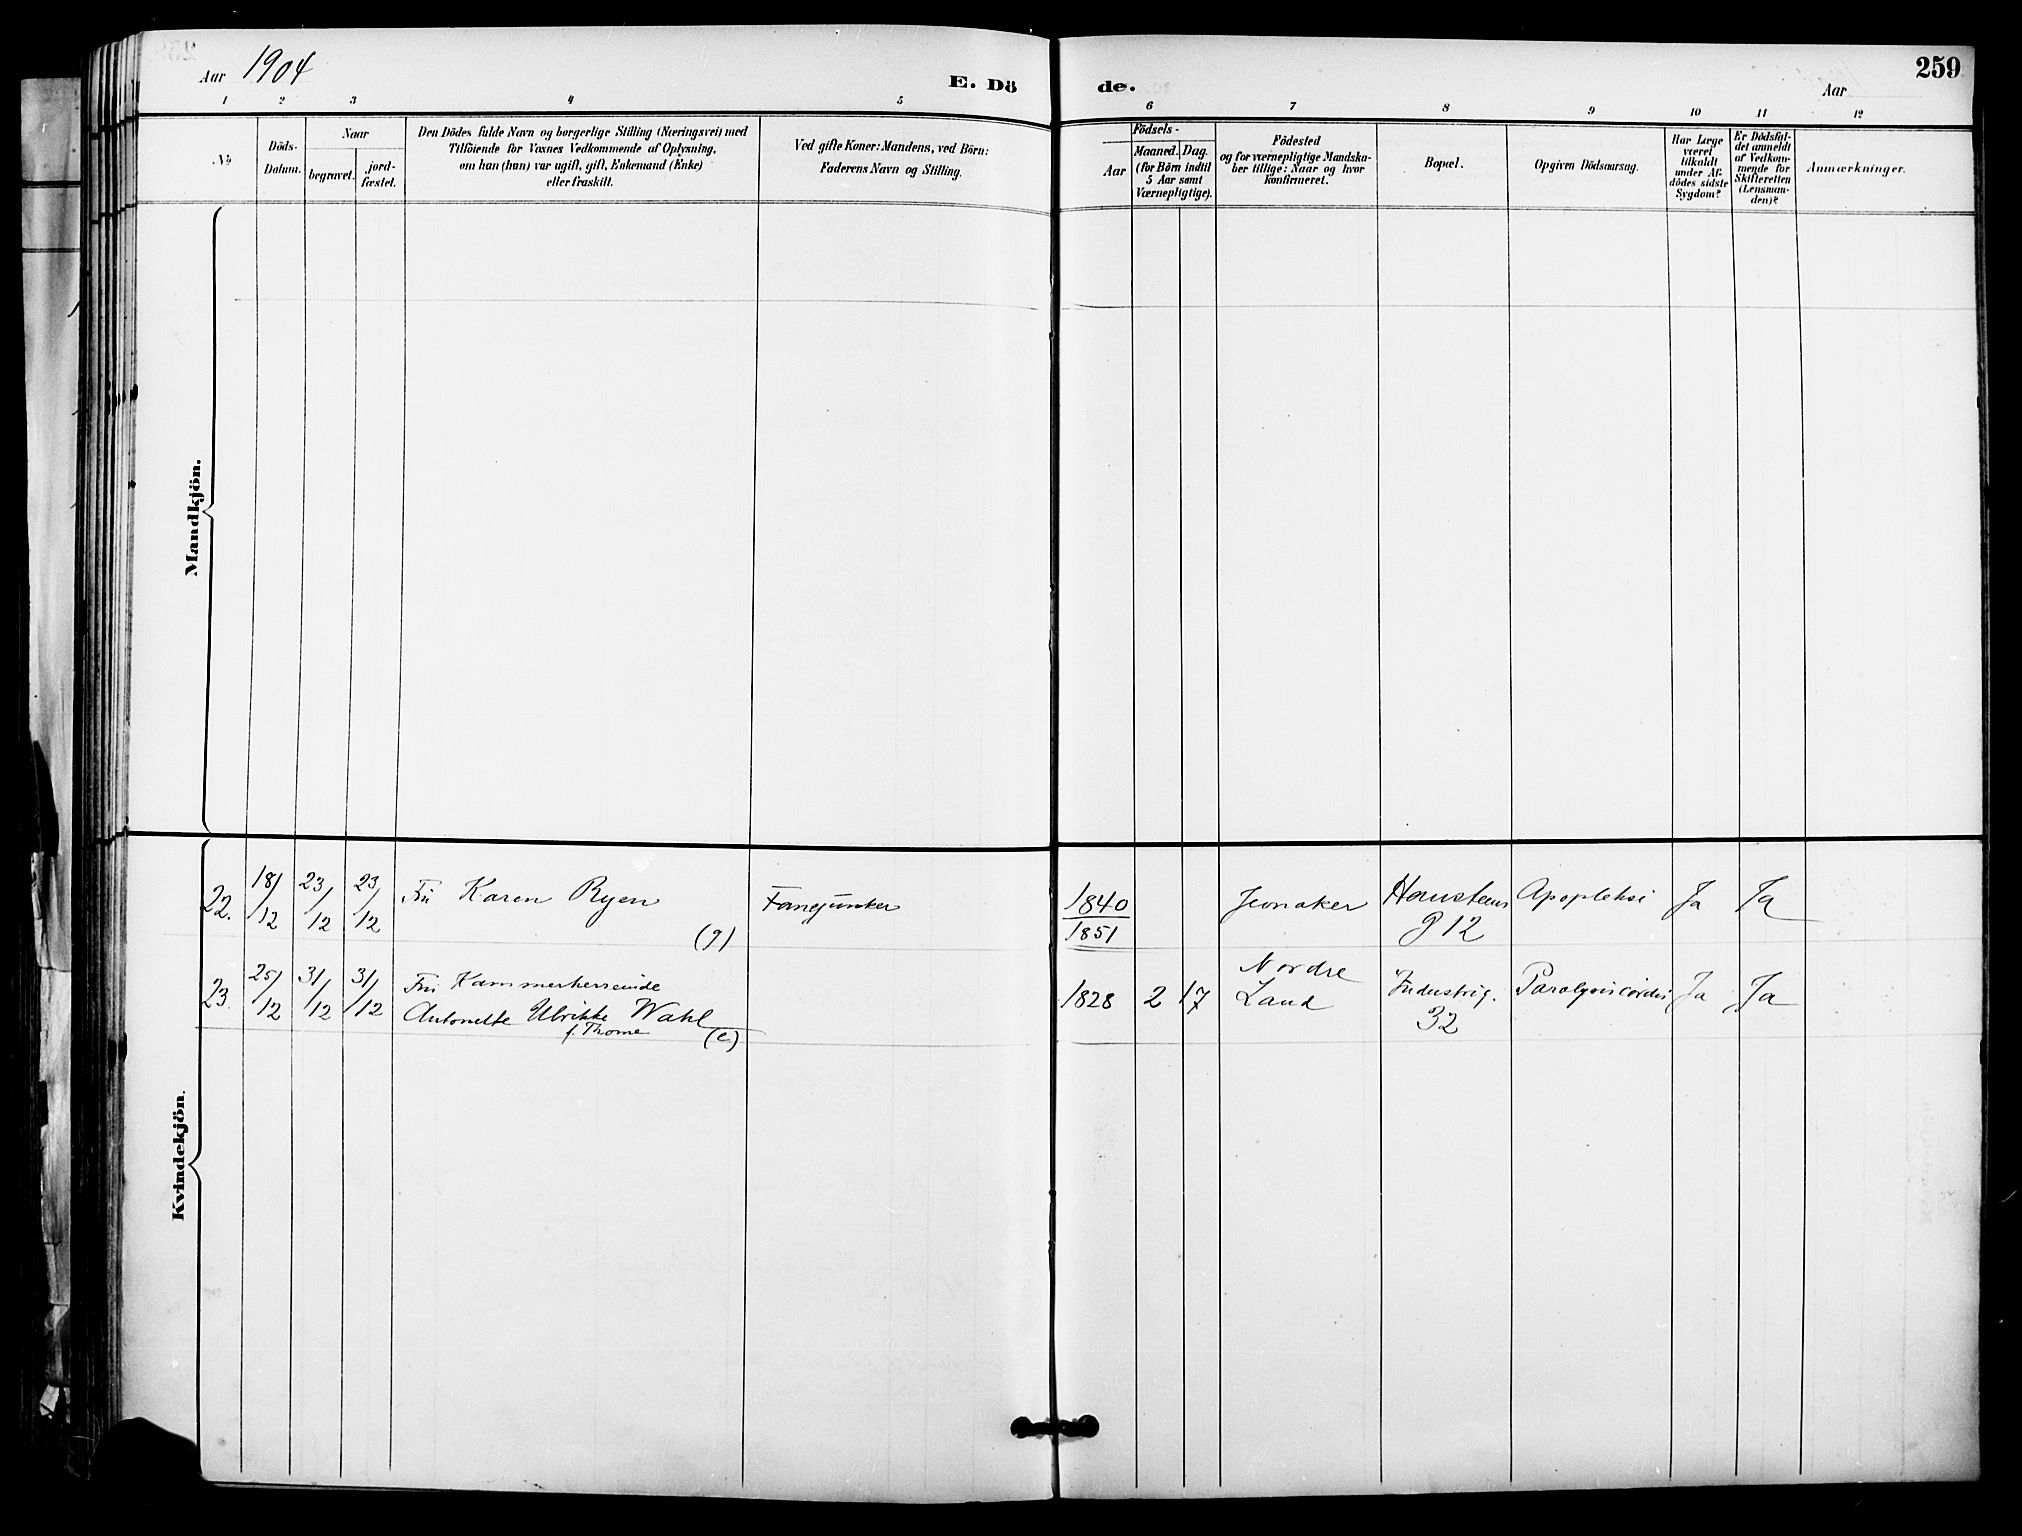 Aar 1904
E. Dö
de.
Aar
259
1 2 3 4 5 6 7 8 9 10 11 12
№
Döds-
Datum.
Naar
begravet.
jord-
fæstet.
Den Dödes fulde Navn og borgerlige Stilling (Næringsvei) med
Tilföiende for Voxnes Vedkommende af Oplysning,
om han (hun) var ugift, gift, Enkemand (Enke)
eller fraskilt.
Ved gifte Koner: Mandens, ved Börn:
Faderens Navn og Stilling.
Födsels-
Aar
Maaned. Dag.
(for Börn indtil
5 Aar samt
Værnepligtige).
Födested
og for værnepligtige Mandska-
ber tillige: Naar og hvor
konfirmeret.
Bopæl.
Opgiven Dödsaarsag.
Har Læge
været
tilkaldt
under Af-
dödes sidste
Sygdom?
Er Dödsfal-
det anmeldt
af Vedkom-
mende for
Skifteretten
(Lensman-
den)?
Anmærkninger.
Mandkjön.
Kvindekjön.
22. 18/12 23/12 23/12 Fru Karen Ryen (g) Fanejunker 1840 Jevnaker Hansteens Apopleksi Ja Ja
1851 g 12
23. 25/12 31/12 31/12 Fru Kammerherreinde 1828 2 17 Nordre Industrig. Paralysis cordis Ja Ja
Antonette Ulrikke Wahl Land 32
f. Thorne (e)